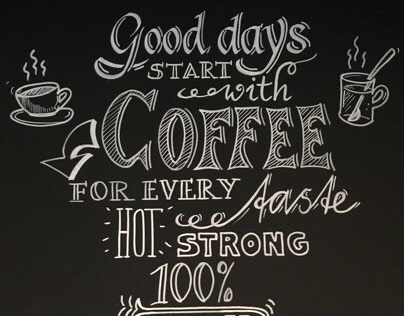 Good days
START
with
COFFEE
FOR EVERY taste
HOT STRONG
100%